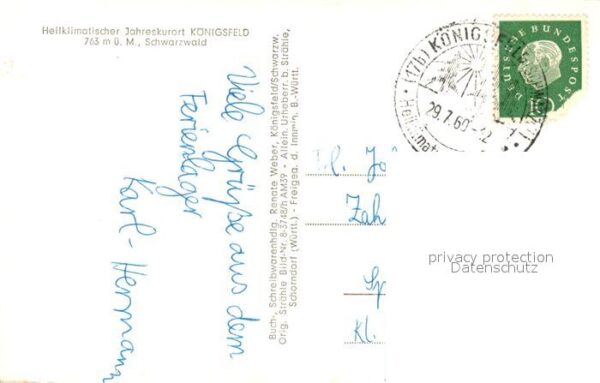 Heilklimatischer Jahreskurort KÖNIGSFELD
763 m ü. M., Schwarzwald
Viele Grüße aus dem
Ferienlager
Karl-Hermann
Buch-, Schreibwarenhdlg. Renate Weber, Königsfeld/Schwarzw.
Orig. Strähle Bild-Nr. 8-3748/h AM39 - Allein. Urheberr. b. Strähle,
Schorndorf (Württ.) - Freigeg. d. Innmin. B.-Württ.
(17b) KÖNIGSFELD
29.7.60
Heilklimat
DEUTSCHE BUNDESPOST
10
Zah
Sp
Kl.
privacy protection
Datenschutz